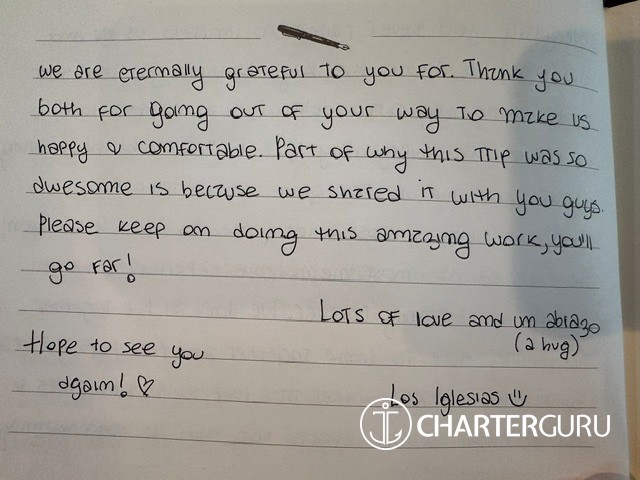 we are eternally grateful to you for. Thank you
both for going out of your way to make us
happy & comfortable. Part of why this trip was so
awesome is because we shared it with you guys.
Please keep on doing this amazing work, you'll
go far!
Lots of love and un abrazo
(a hug)
Hope to see you
again! ♡
Los Iglesias
CHARTERGURU